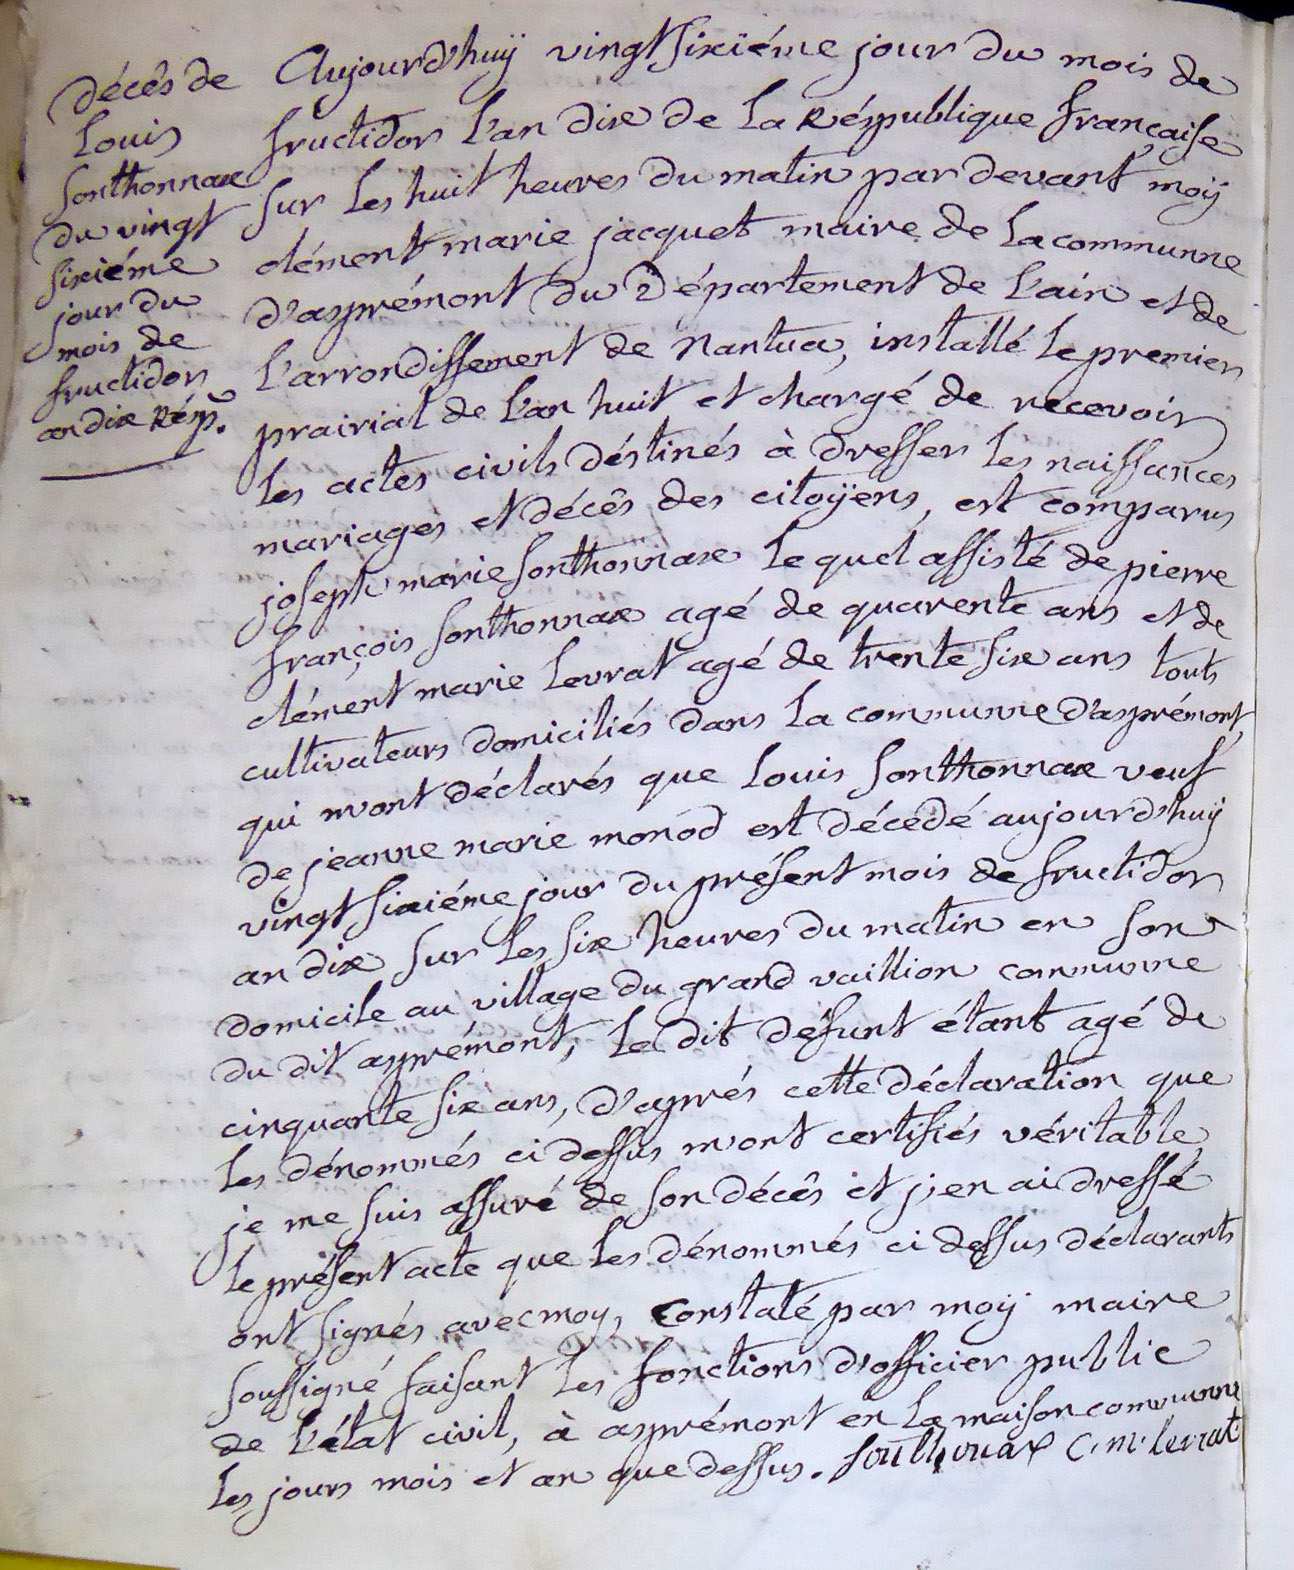 décês de
Louis
Sonthonnax
du vingt
sixiéme
jour du
mois de
fructidor
an dix Rép.
Aujourd'huÿ vingt sixiéme jour du mois de
fructidor l'an dix de la Réspublique française
sur les huit heures du matin par devant moÿ
clément marie jacquet maire de la communne
d'asprémont du Département de l'ain et de
l'arrondissement de Nantua, installé le premier
prairial de l'an huit et chargé de recevoir
les actes civils déstinés à dresser les naissances
mariages et décês des citoÿens, est comparus
joseph marie Sonthonnax le quel assisté de pierre
françois Sonthonnax agé de quarente ans et de
clément marie Levrat agé de trente six ans touts
cultivateurs domiciliés dans la communne d'asprémont,
qui m'ont déclarés que Louis Sonthonnax veuf
de jeanne marie monod est décédé aujourd'huÿ
vingt sixiéme jour du présent mois de fructidor
an dix sur les six heures du matin en son
domicile au village du grand vaillion communne
du dit asprémont, le dit défunt étant agé de
cinquante six ans, d'aprés cette déclaration que
les dénommés ci dessus m'ont certifiés véritable
je me suis assuré de son décês et j'en ai dressé
le présent acte que les dénommés ci dessus déclarants
ont signés avec moy, constaté par moÿ maire
soussigné faisant les fonctions d'officier public
de l'état civil, à asprémont en la maison communne
les jours mois et an que dessus. Sonthonax C. m. levrat